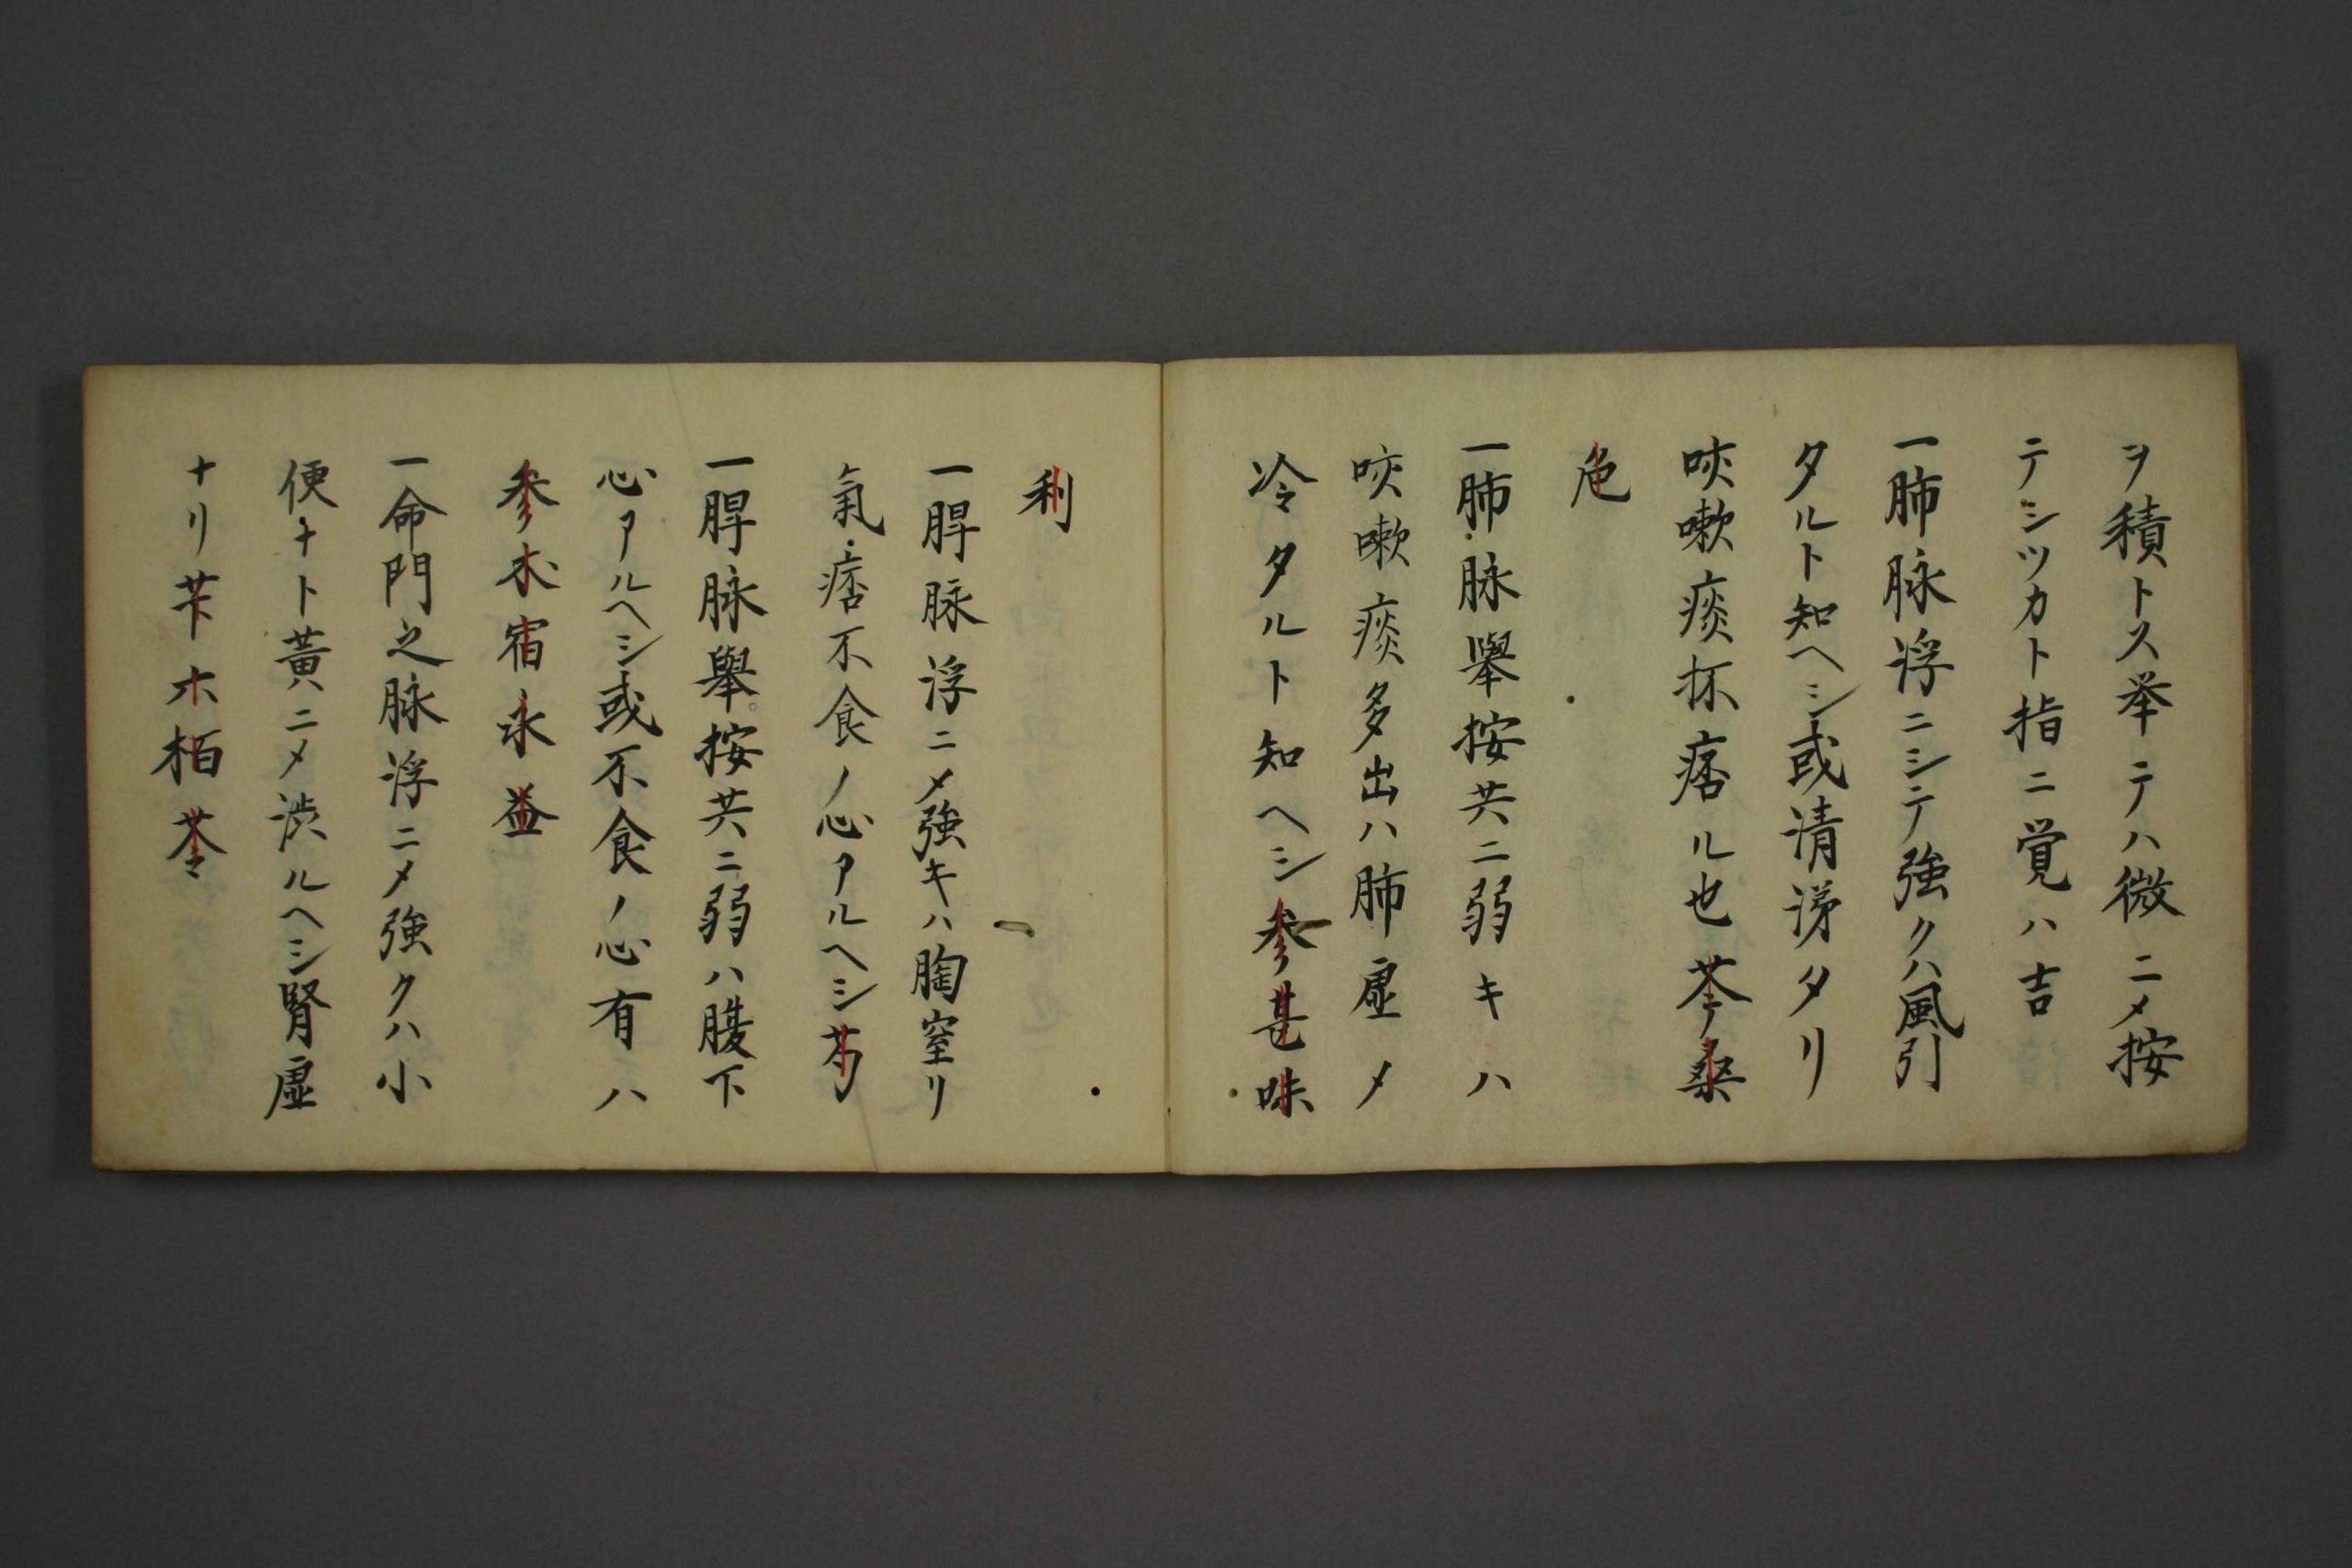 ヲ積トス挙テハ微ニメ按
テシツカト指ニ覚ハ吉
一肺脉浮ニシテ強クハ風引
タルト知ヘシ或清涕タリ
咳嗽痰抔痞ル也芩桑
危
一肺脉舉按共ニ弱キハ
咳嗽痰多出ハ肺虚メ
冷タルト知ヘシ参甚味
利
一脾脉浮ニメ強キハ胸窒リ
氣痞不食ノ心アルヘシ芍
一脾脉舉按共ニ弱ハ腹下
心アルヘシ或不食ノ心有ハ
参朮宿永益
一命門之脉浮ニメ強クハ小
便ナト黄ニメ渋ルヘシ腎虚
ナリ芐木栢苓